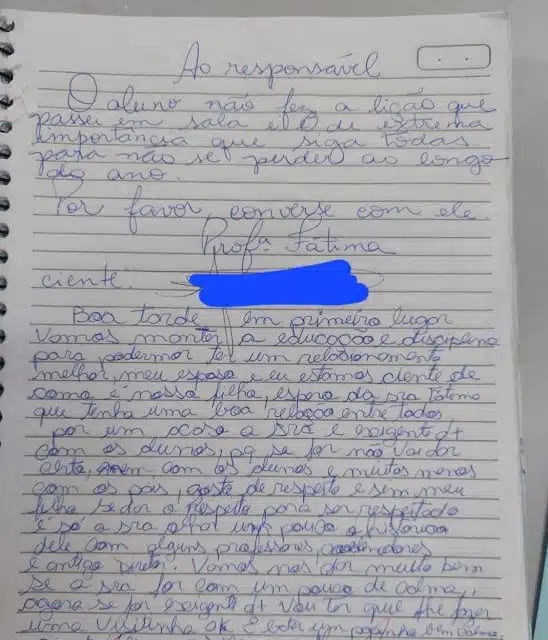 Ao responsável
O aluno não fez a lição que
passei em sala e é de extrema
importância que siga todas
para não se perder ao longo
do ano.
Por favor, converse com ele.
Profª Fátima
ciente:
Boa tarde, em primeiro lugar
Vamos manter a educação e disciplina
para podermor ter um relacionamento
melhor, meu esposo e eu estamos ciente de
como é nosso filho, espero da sra Fátima
que tenha uma boa relação entre todos
por um acaso a srá é exigente d+
com os alunos, pq se for não vai dar
certo, nem com os alunos e muitos menos
com os pais, gosta de respeito e sem meu
filho se dar o respeito para ser respeitado
é só a sra olhar um pouco a história
dele com alguns professores, coordenadores
e antigo diretor. Vamos nos dar muito bem
se a sra for com um pouco de calma,
agora se for exigente d+ vou ter que lhe fazer
uma visitinha ok. E bater um papinho bem